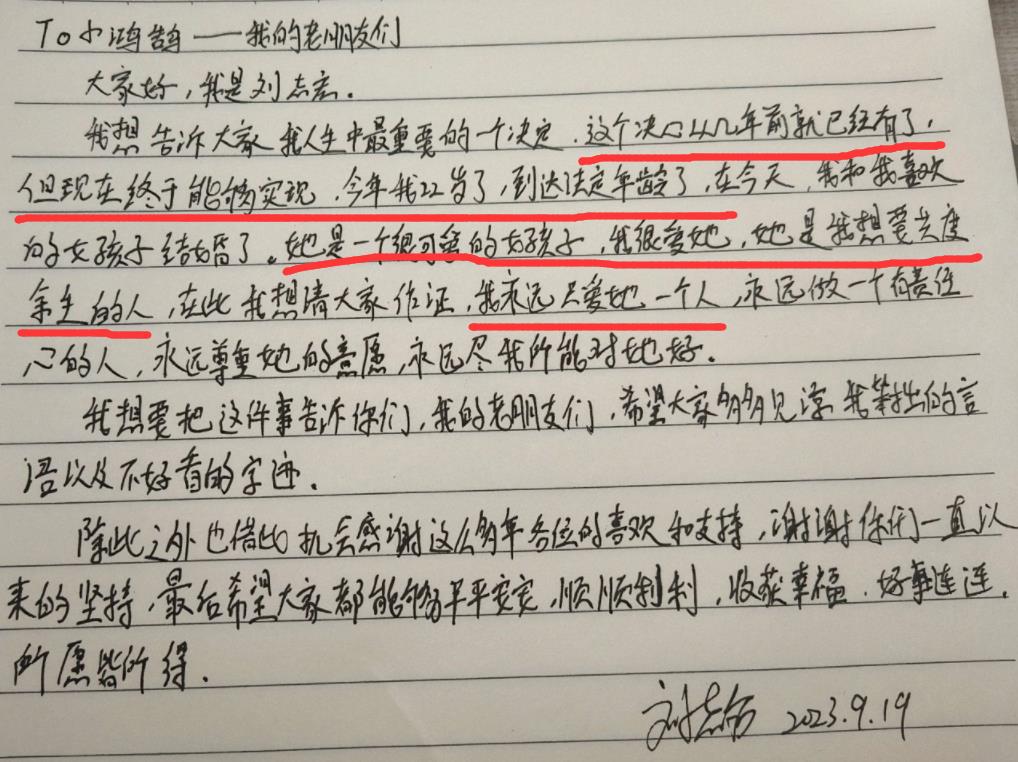 To小鸿鹄——我的老朋友们
大家好,我是刘志宏.
我想告诉大家我人生中最重要的一个决定.这个决心从几年前就已经有了,
但现在终于能够实现,今年我22岁了,到达法定年龄了,在今天,我和我喜欢
的女孩子结婚了。她是一个很可爱的女孩子,我很爱她,她是我想要共度
余生的人,在此我想请大家作证,我永远只爱她一个人,永远做一个有责任
心的人,永远尊重她的意愿,永远尽我所能对她好.
我想要把这件事告诉你们,我的老朋友们,希望大家多多见谅我笨拙的言
语以及不好看的字迹.
除此之外也借此机会感谢这么多年各位的喜欢和支持,谢谢你们一直以
来的坚持,最后希望大家都能够平平安安,顺顺利利,收获幸福.好事连连,
所愿皆所得.
刘志宏 2023.9.19